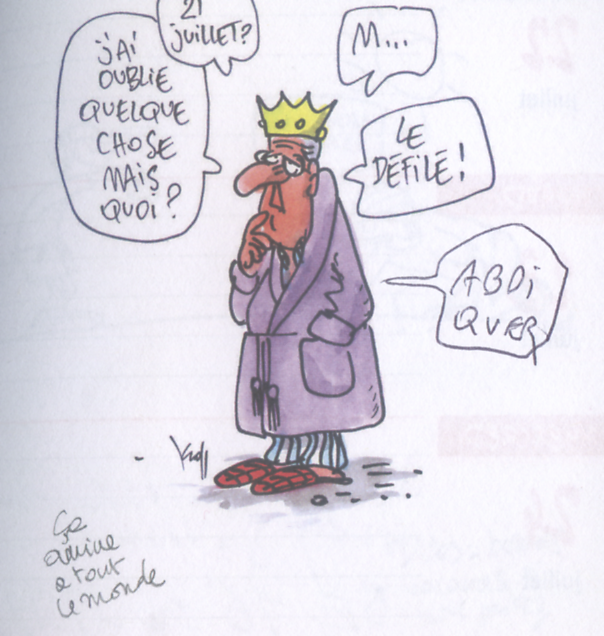 21
juillet?
j'Ai
OUBLIE
QUELQUE
CHOSE
MAIS
QUOi?
M...
LE
DÉFILÉ!
ABDi
QUER
Kroll
ça
arrive
a tout
le monde
22
juillet
24
juillet